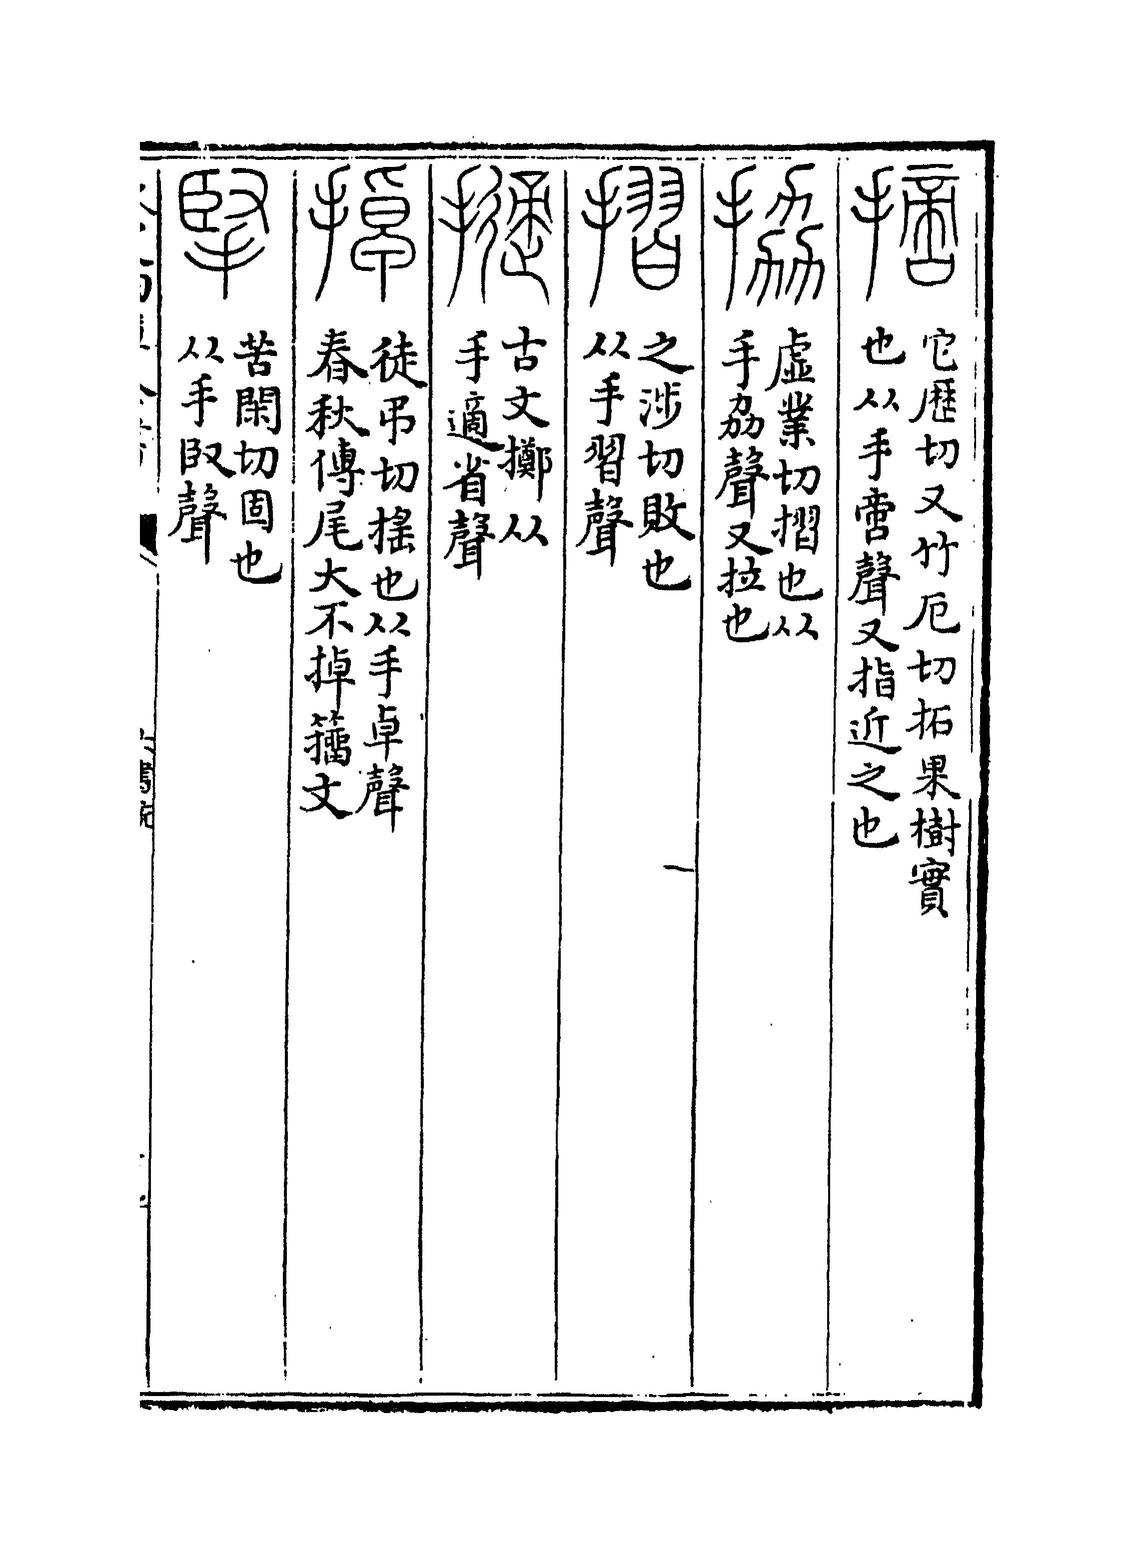 摘
它歷切又竹厄切拓果樹實
也从手啻聲又指近之也
拹
虛業切摺也从
手劦聲又拉也
摺
之涉切敗也
从手習聲
古文擲从
手適省聲
掉
徒弔切搖也从手卓聲
春秋傳尾大不掉籀文
掔
苦閑切固也
从手臤聲
六書統